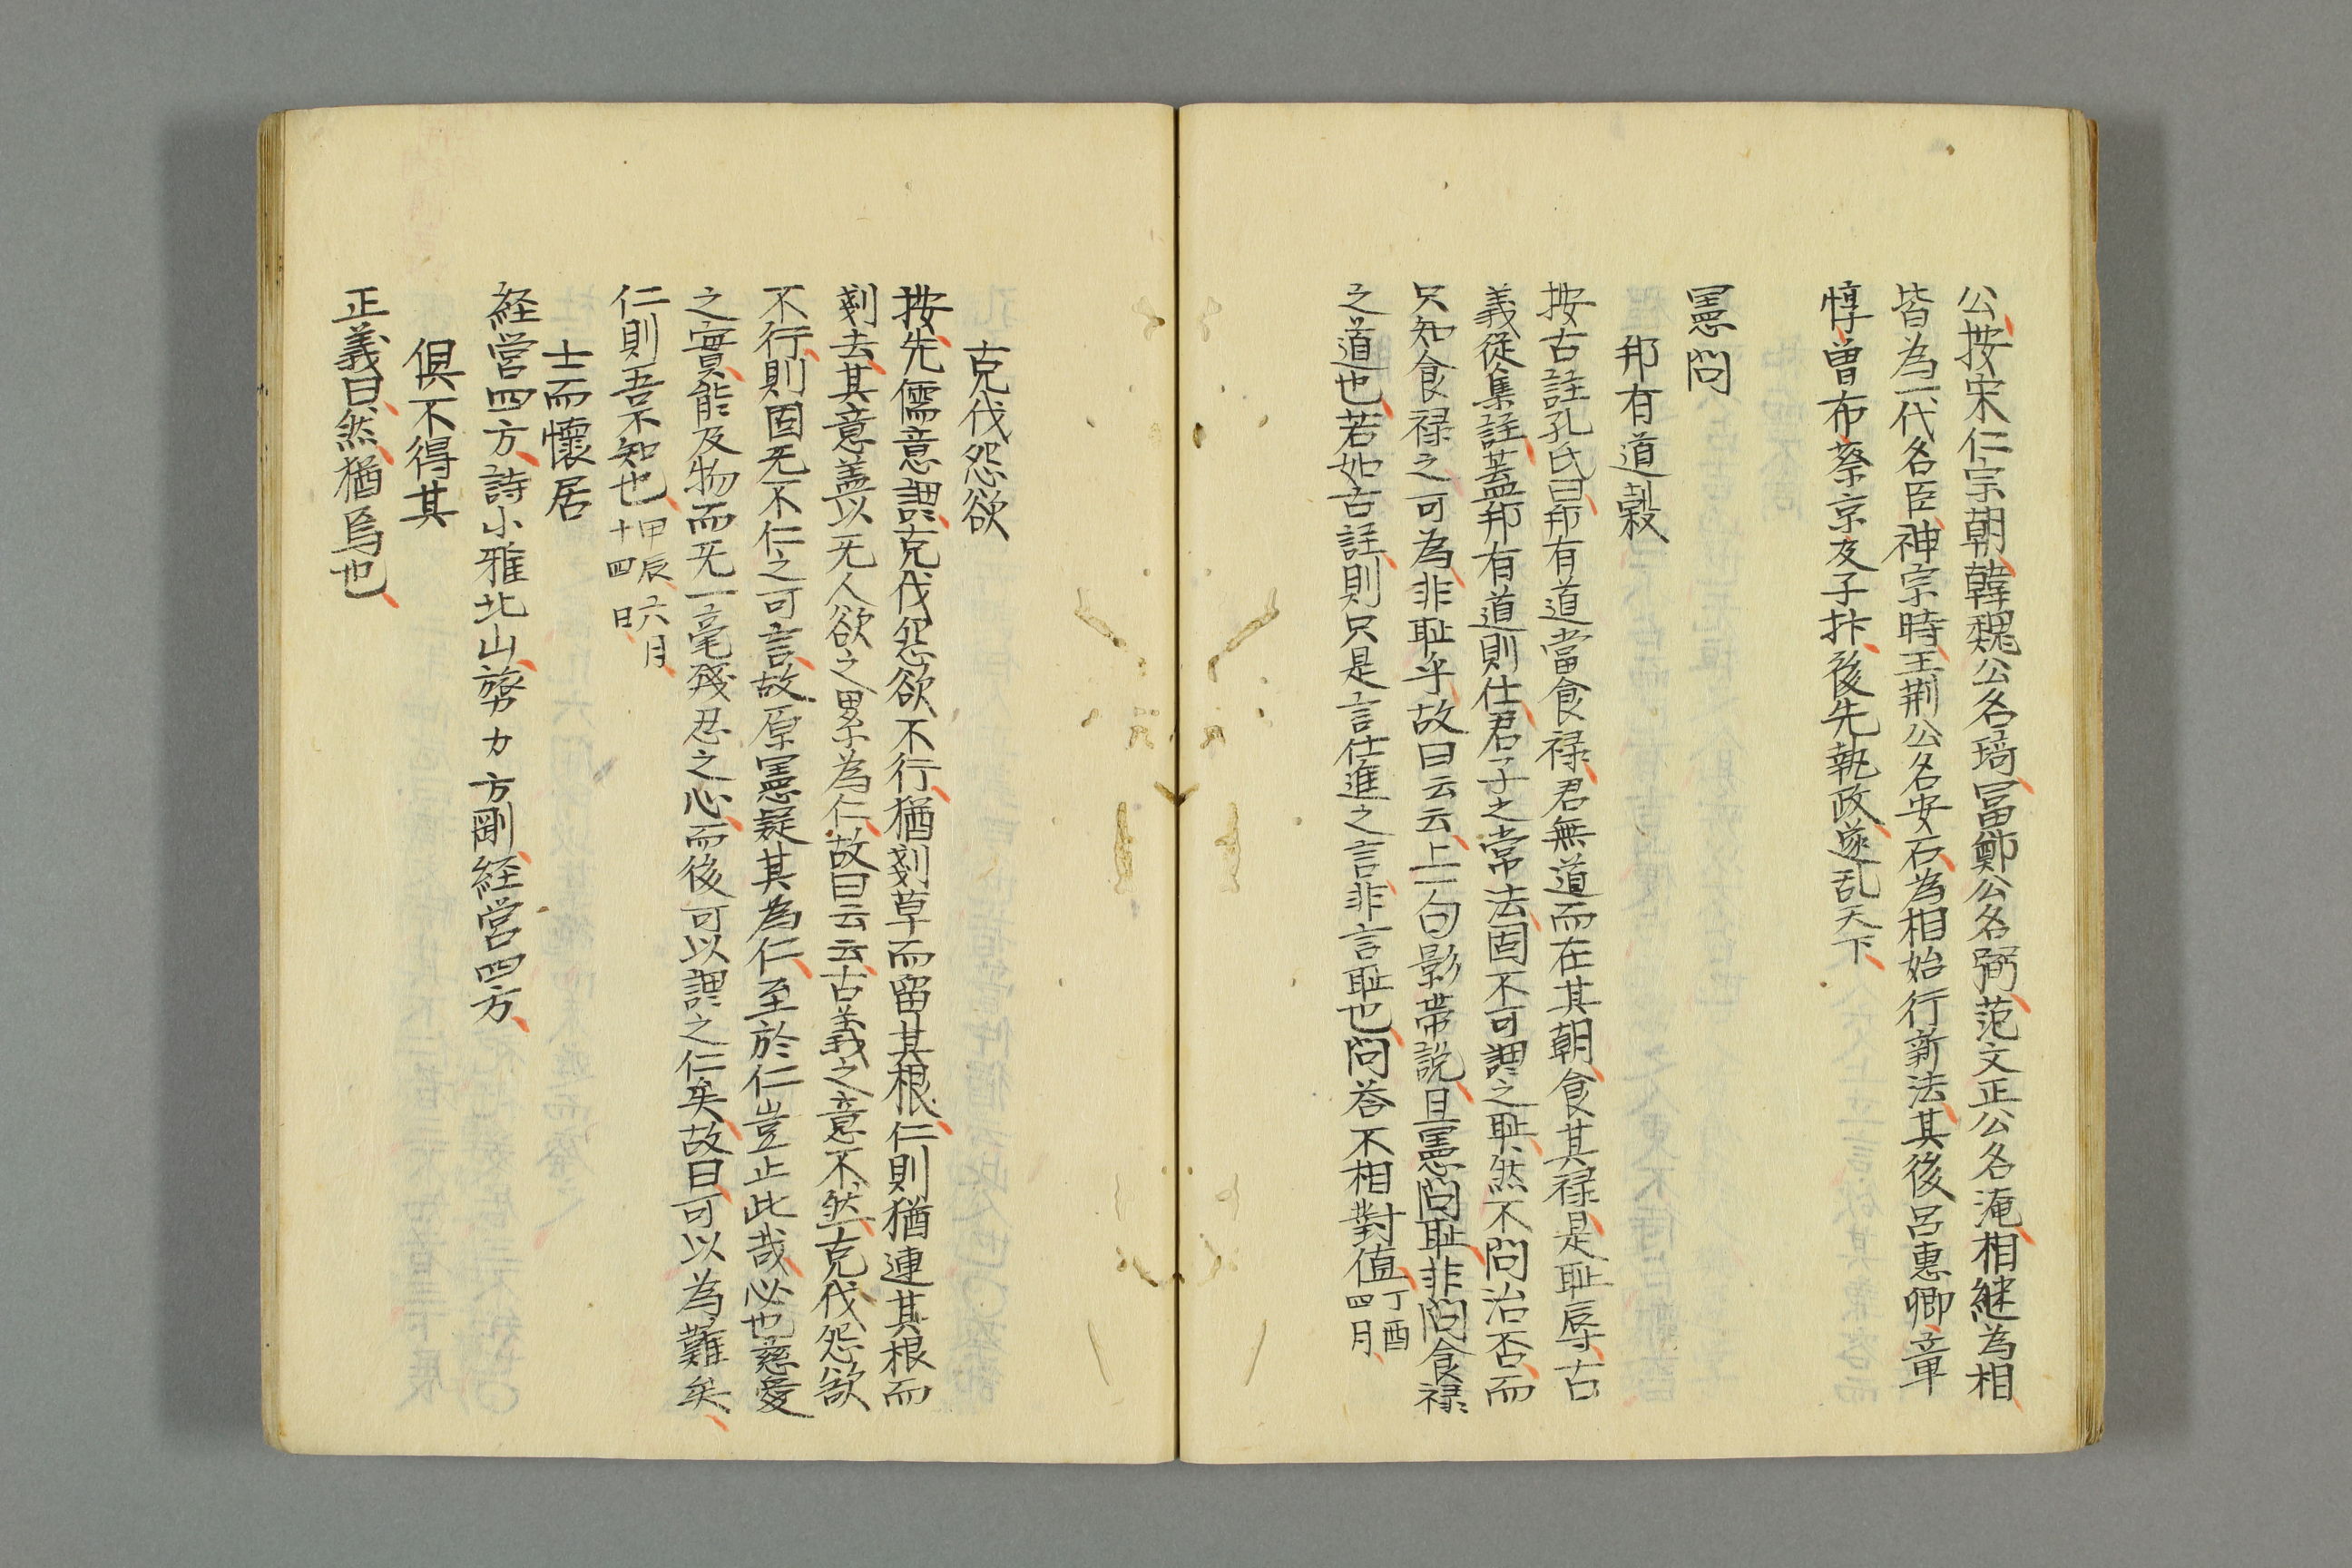 公按宋仁宗朝韓魏公名琦冨鄭公名弼范文正公名淹相継為相
皆為一代名臣神宗時王荆公名安石為相始行新法其後呂惠卿章
惇曽布蔡京及子抃後先執政遂乱天下
憲問
邦有道穀
按古註孔氏曰邦有道當食禄君無道而在其朝食其禄是耻辱古
義從集註蓋邦有道則仕君子之常法固不可謂之耻然不問治否而
只知食禄之可為非耻乎故曰云云上一句影帯説且憲問耻非問食禄
之道也若如古註則只是言仕進之言非言耻也問答不相對値丁酉四月
克伐怨欲
按先儒意謂克伐怨欲不行猶剗草而留其根仁則猶連其根而
剗去其意盖以无人欲之累為仁故曰云云古義之意不然克伐怨欲
不行則固无不仁之可言故原憲疑其為仁至於仁豈止此哉必也慈愛
之實能及物而无一毫残忍之心而後可以謂之仁矣故曰可以為難矣
仁則吾不知也甲辰六月十四日
士而懷居
経営四方詩小雅北山旅力方剛経営四方
倶不得其
正義曰然猶焉也